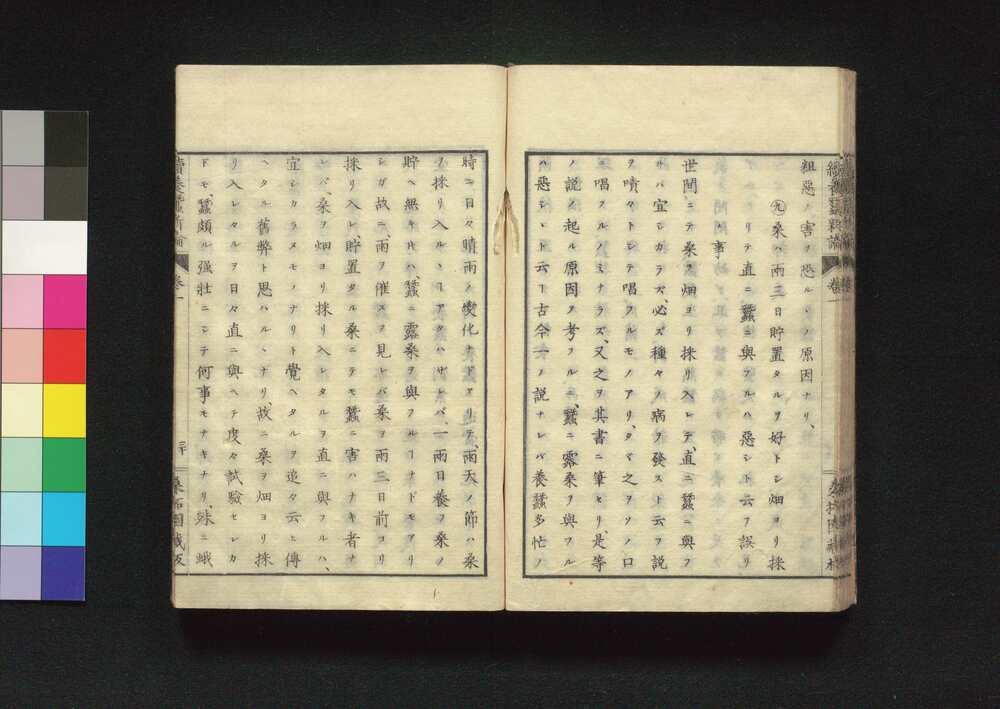 粗惡ノ害ヲ恐ルヽノ原因ナリ、
㊈桑ハ兩三日貯置タルヲ好トシ畑ヨリ採
リテ直ニ蠶ニ與フルハ惡シト云フ誤リ
事
世間ニテ桑ヲ畑ヨリ採リ入レテ直ニ蠶ニ與フ
レバ宜シカラズ、必ズ種々ノ病ヲ發スト云フ説
ヲ嘖々トシテ唱フルモノアリ、タヾ之ヲソノ口
ニ唱フルノミナラズ、又之ヲ其書ニ筆セリ、是等
ノ説ノ起ル原因ヲ考フルニ、蠶ニ露桑ヲ與フル
ハ惡シヽト云フ古今一ノ説ナレバ養蠶多忙ノ
時ニ日々晴雨ノ變化ナドアリテ、雨天ノ節ハ桑
ヲ採リ入ルヽコアタハザレバ、一兩日養フ桑ノ
貯ヘ無キ片ハ、蠶ニ露桑ヲ與フルコナドモアリ
シガ故ニ、雨ヲ催スヲ見レバ桑ヲ兩三日前ヨリ
採リ入レ、貯置タル桑ニテモ蠶ニ害ハナキ者ナ
レバ、桑ヲ畑ヨリ採リ入レタルヲ直ニ與フルハ、
宜シカラヌモノナリト覺ヘタルヲ追々云ヒ傳
ヘタル舊弊ト思ハルヽナリ、故ニ、桑ヲ畑ヨリ採
リ入レタルヲ日々直ニ與ヘテ度々試驗セシカ
ドモ、蠶頗ル强壯ニシテ何事モナキナリ、殊ニ蛾
卷一
二十